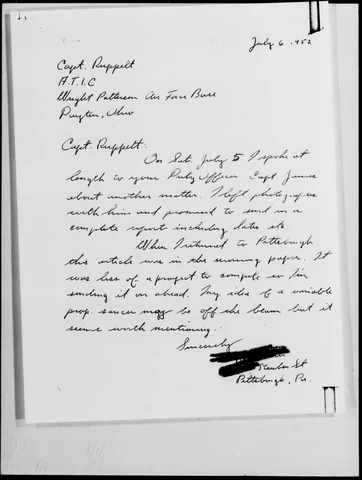 July 6, 1952
Capt. Ruppelt
A.T.I.C
Wright Patterson Air Force Base
Dayton, Ohio
Capt. Ruppelt:
On Sat. July 5 I spoke at
length to your Duty Officer Capt. James
about another matter. I left photographs
with him and promised to send in a
complete report including dates etc.
When I returned to Pittsburgh
this article was in the morning paper. It
was less of a project to compile so I'm
sending it on ahead. My idea of a variable
prop. saucer may be off the beam but it
seems worth mentioning.
Sincerely
St
Pittsburgh, Pa.